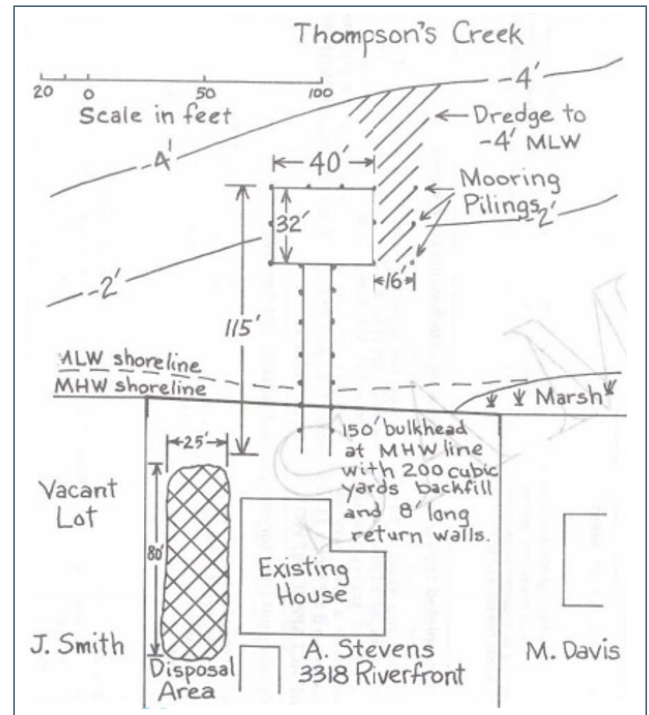 Thompson's Creek
20 0 50 100
Scale in feet
-4'
Dredge to
-4' MLW
-4'
40'
Mooring
Pilings
-2'
32'
-2'
16'
115'
MLW shoreline
MHW shoreline
Marsh
25'
150' bulkhead
at MHW line
with 200 cubic
yards backfill
and 8' long
return walls.
Vacant
Lot
80'
Existing
House
J. Smith
A. Stevens
3318 Riverfront
M. Davis
Disposal
Area
SAM